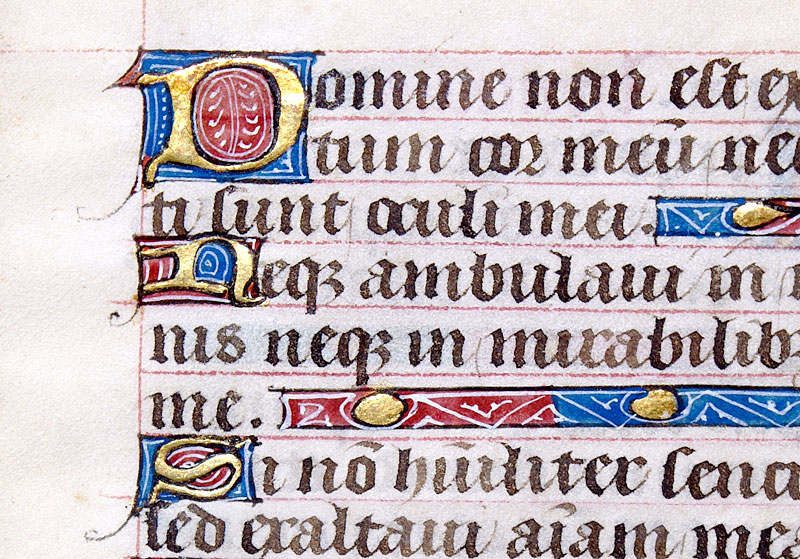 Domine non est ex
tum cor meū neq
ti sunt oculi mei.
Neqꝫ ambulaui in
nis neqꝫ in mirabilib
me.
Si nō hūiliter senci
sed exaltaui aīam mea